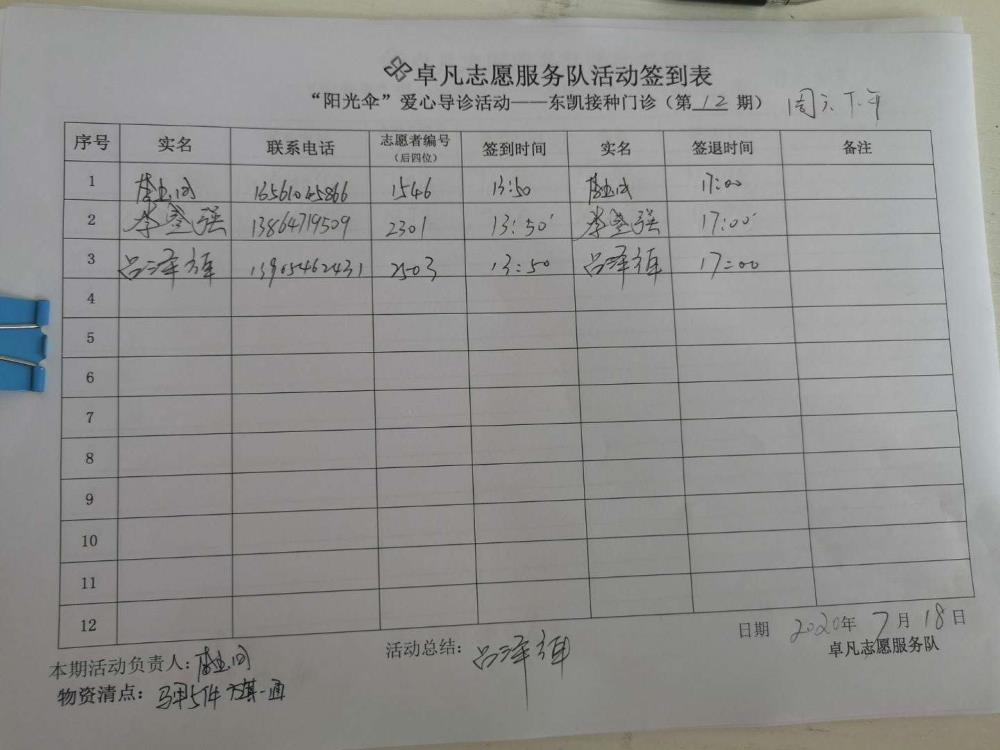 卓凡志愿服务队活动签到表
“阳光伞”爱心导诊活动——东凯接种门诊（第 12 期） 周六下午
序号 实名 联系电话 志愿者编号（后四位） 签到时间 实名 签退时间 备注
1 1546 13:50 17:00
2 李奎强 13864719509 2301 13:50 李奎强 17:00
3 吕泽 13905462431 2503 13:50 吕泽 17:00
4
5
6
7
8
9
10
11
12
日期 2020年 7 月 18 日
本期活动负责人： 活动总结：吕泽 卓凡志愿服务队
物资清点：马甲5件 旗一面